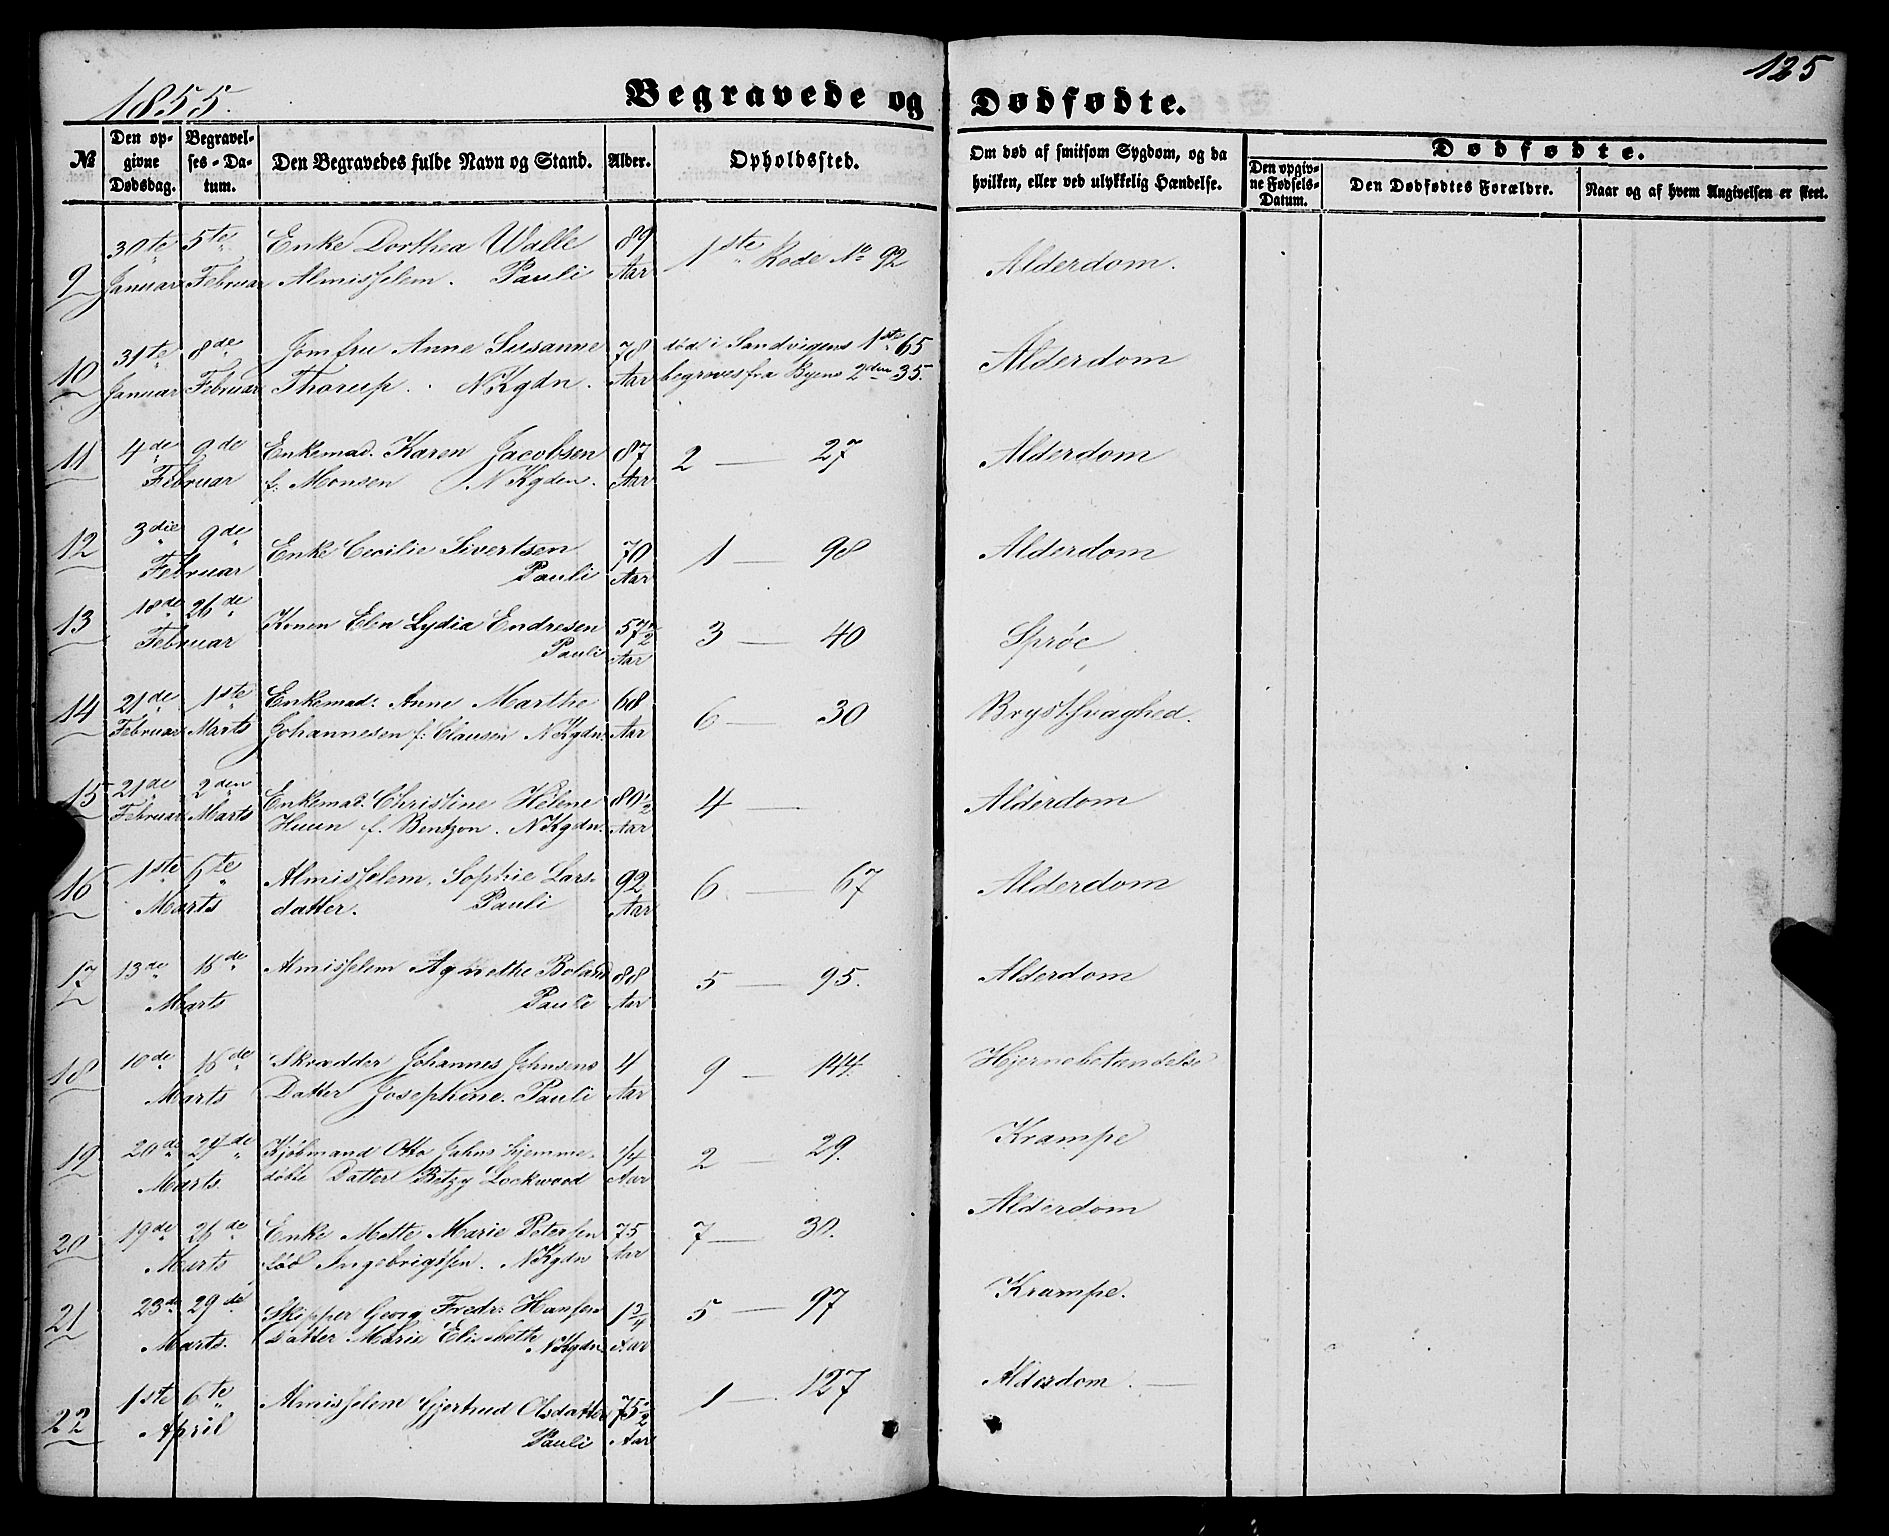 1855.
Begravede og Dødfødte.
125
№
Den opgivne Dødsdag.
Begravelses-Datum.
Den Begravedes fulde Navn og Stand.
Alder.
Opholdssted.
Om død af smitsom Sygdom, og da hvilken, eller ved ulykkelig Hændelse.
Dødfødte.
Den opgivne Fødsels-Datum.
Den Dødfødtes Forældre.
Naar og af hvem Angivelsen er skeet.
9 30te Januar 5te Februar Enke Dorthea Walle 89 Aar 1ste Rode No 92 Alderdom.
Almisselem. Pauli
10 31te Januar 8de Februar Jomfru Anne Susanne 78 Aar død i Sandvigens 1ste 65 Alderdom
Thorup. NKgdn. begraves fra Byens 2den 35.
11 4de 9de Februar Enkemad. Karen Jacobsen 87 Aar 2 — 27 Alderdom
f. Monsen NKgdn.
12 3die 9de Februar Enke Cecilie Sivertsen 70 Aar 1 — 98 Alderdom
Pauli
13 18de 26de Februar Konen Elen Lydia Endresen 57 1/2 Aar 3 — 40
Pauli
14 21de Februar 1ste Marts Enkemad. Anne Marthe 68 Aar 6 — 30 Brystsvaghed.
Johannesen f: Clausen NKgdn.
15 21de Februar 2den Marts Enkemad. Christine Helene 80 1/2 Aar 4 — Alderdom
Huun f. Bentzon. NKgdn.
16 1ste 6te Marts Almisselem. Sophie Lars- 92 Aar 6 — 67 Alderdom
datter. Pauli
17 13de 15de Marts Almisselem Agnethe Boland 88 Aar 5 — 95. Alderdom
Pauli
18 10de 16de Marts Skrædder Johannes Johnsens 4 Aar 9 — 144. Hjernebetændelse
Datter Josephine. Pauli
19 20de 24de Marts. Kjøbmand Otto Jahns hjemme- 1/4 Aar 2 — 29. Krampe
døbte Datter Betzy Lockwood
20 19de 26de Marts Enke Mette Marie Petersen 75 Aar 7 — 30. Alderdom
fød Ingebrigtsen. NKgdn
21 23de 29de Marts. Skipper Georg Fredr: Hansen 1 3/4 Aar 5 — 97 Krampe.
Datter Marie Elisabeth NKgdn
22 1ste 6te April Almisselem Gjertrud Olsdatter 75 1/2 Aar 1 — 127 Alderdom. —
Pauli